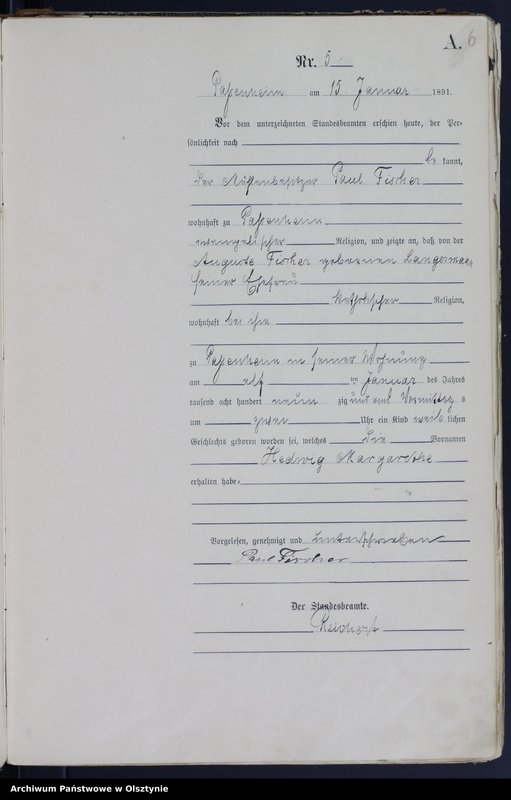 A. 6
Nr. 5
Passenheim am 15. Januar 1891.
Vor dem unterzeichneten Standesbeamten erschien heute, der Per-
sönlichkeit nach
be kannt,
der Mühlenbesitzer Paul Fischer
wohnhaft zu Passenheim
evangelischer Religion, und zeigte an, daß von der
Auguste Fischer geborenen
seiner Ehefrau
katholischer Religion,
wohnhaft bei ihm
zu Passenheim in seiner Wohnung
am elf ten Januar des Jahres
tausend acht hundert neun zig und eins Vormittag s
um zwei Uhr ein Kind weib lichen
Geschlechts geboren worden sei, welches die Vornamen
Hedwig Margarethe
erhalten habe.
Vorgelesen, genehmigt und unterschrieben
Paul Fischer
Der Standesbeamte.
Reichert
Archiwum Państwowe w Olsztynie